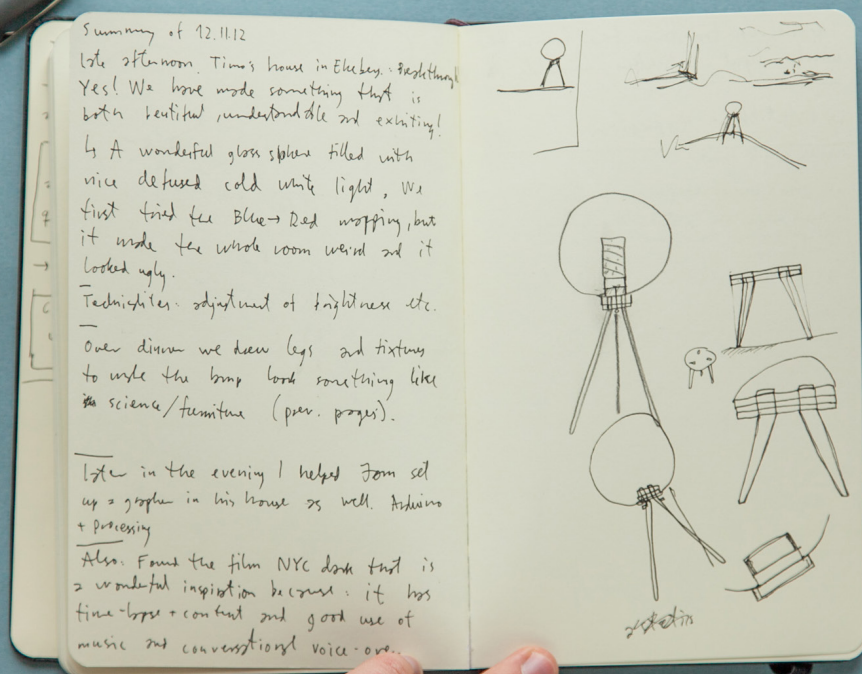 Summary of 12.11.12
late afternoon. Timo's house in Ekeberg. Breakthrough
Yes! We have made something that is
both beutiful, understandable and exhiting!
↳ A wonderful glass sphere filled with
nice defused cold white light, We
first tried the Blue → Red mapping, but
it made the whole room weird and it
looked ugly.
adjustment of brightness etc.
Over dinner we drew legs and fixtures
to make the lamp look something like
science/furniture (prev. pages).
later in the evening I helped Jørn set
up a grapher in his house as well. Arduino
+ Processing
Also: Found the film NYC dark that is
a wonderful inspiration because: it has
time-lapse + content and good use of
music and conversational voice-over.